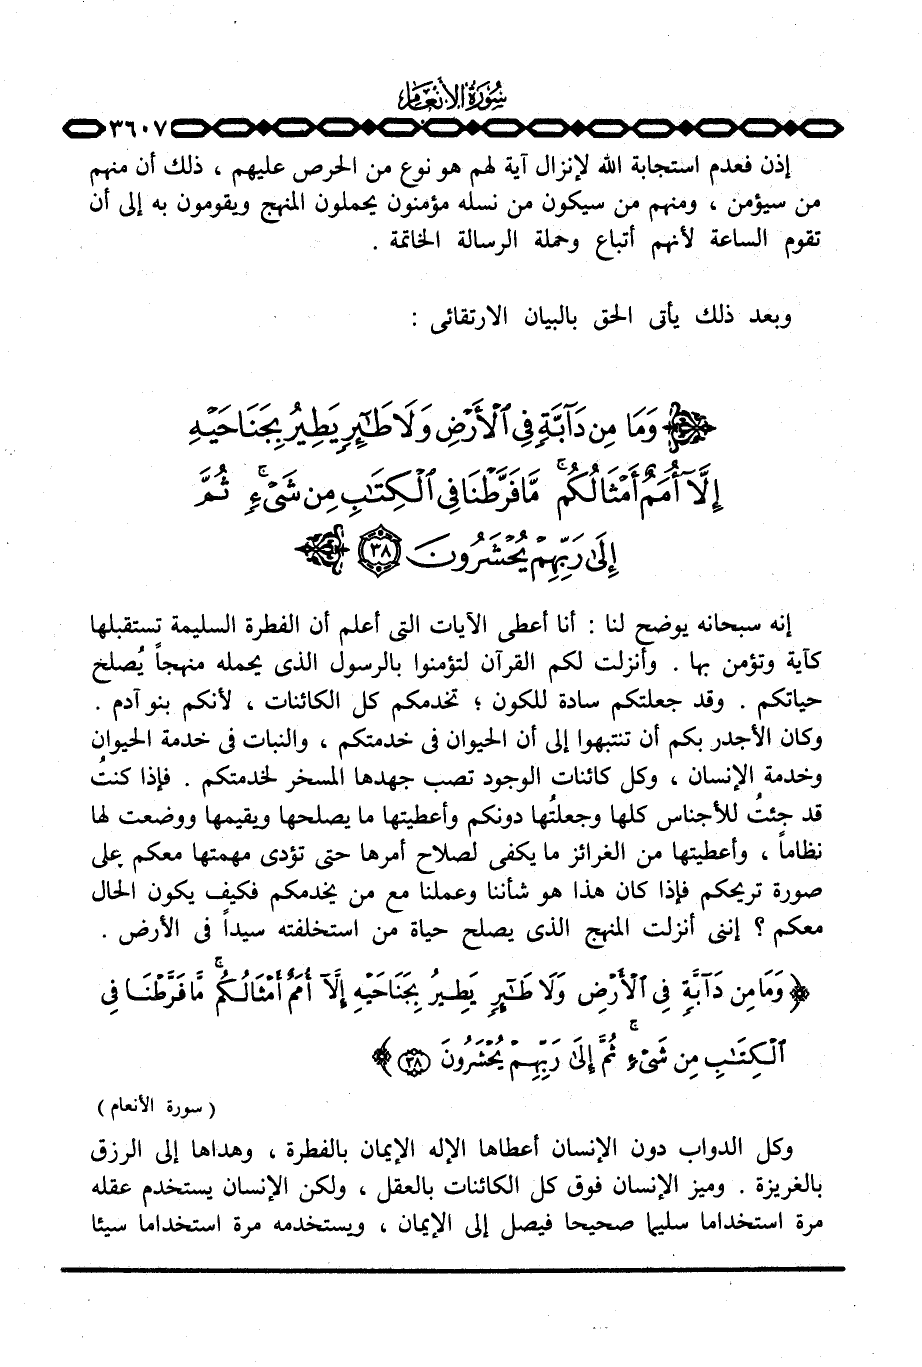 سورة الأنعام
٣٦٠٧
إذن فعدم استجابة الله لإنزال آية لهم هو نوع من الحرص عليهم ، ذلك أن منهم
من سيؤمن ، ومنهم من سيكون من نسله مؤمنون يحملون المنهج ويقومون به إلى أن
تقوم الساعة لأنهم أتباع وحملة الرسالة الخاتمة .
وبعد ذلك يأتى الحق بالبيان الارتقائى :
وَمَا مِن دَآبَّةٍ فِى ٱلْأَرْضِ وَلَا طَـٰٓئِرٍ يَطِيرُ بِجَنَاحَيْهِ
إِلَّآ أُمَمٌ أَمْثَالُكُم ۚ مَّا فَرَّطْنَا فِى ٱلْكِتَـٰبِ مِن شَىْءٍ ۚ ثُمَّ
إِلَىٰ رَبِّهِمْ يُحْشَرُونَ ٣٨
إنه سبحانه يوضح لنا : أنا أعطى الآيات التى أعلم أن الفطرة السليمة تستقبلها
كآية وتؤمن بها . وأنزلت لكم القرآن لتؤمنوا بالرسول الذى يحمله منهجاً يُصلح
حياتكم . وقد جعلتكم سادة للكون ؛ تخدمكم كل الكائنات ، لأنكم بنو آدم .
وكان الأجدر بكم أن تنتبهوا إلى أن الحيوان فى خدمتكم ، والنبات فى خدمة الحيوان
وخدمة الإنسان ، وكل كائنات الوجود تصب جهدها المسخر لخدمتكم . فإذا كنتُ
قد جئتُ للأجناس كلها وجعلتُها دونكم وأعطيتها ما يصلحها ويقيمها ووضعت لها
نظاماً ، وأعطيتها من الغرائز ما يكفى لصلاح أمرها حتى تؤدى مهمتها معكم على
صورة تريحكم فإذا كان هذا هو شأننا وعملنا مع من يخدمكم فكيف يكون الحال
معكم ؟ إننى أنزلت المنهج الذى يصلح حياة من استخلفته سيداً فى الأرض .
﴿ وَمَا مِن دَآبَّةٍ فِى ٱلْأَرْضِ وَلَا طَـٰٓئِرٍ يَطِيرُ بِجَنَاحَيْهِ إِلَّآ أُمَمٌ أَمْثَالُكُم ۚ مَّا فَرَّطْنَا فِى
ٱلْكِتَـٰبِ مِن شَىْءٍ ۚ ثُمَّ إِلَىٰ رَبِّهِمْ يُحْشَرُونَ ٣٨ ﴾
( سورة الأنعام )
وكل الدواب دون الإنسان أعطاها الإله الإيمان بالفطرة ، وهداها إلى الرزق
بالغريزة . وميز الإنسان فوق كل الكائنات بالعقل ، ولكن الإنسان يستخدم عقله
مرة استخداما سليما صحيحا فيصل إلى الإيمان ، ويستخدمه مرة استخداما سيئا